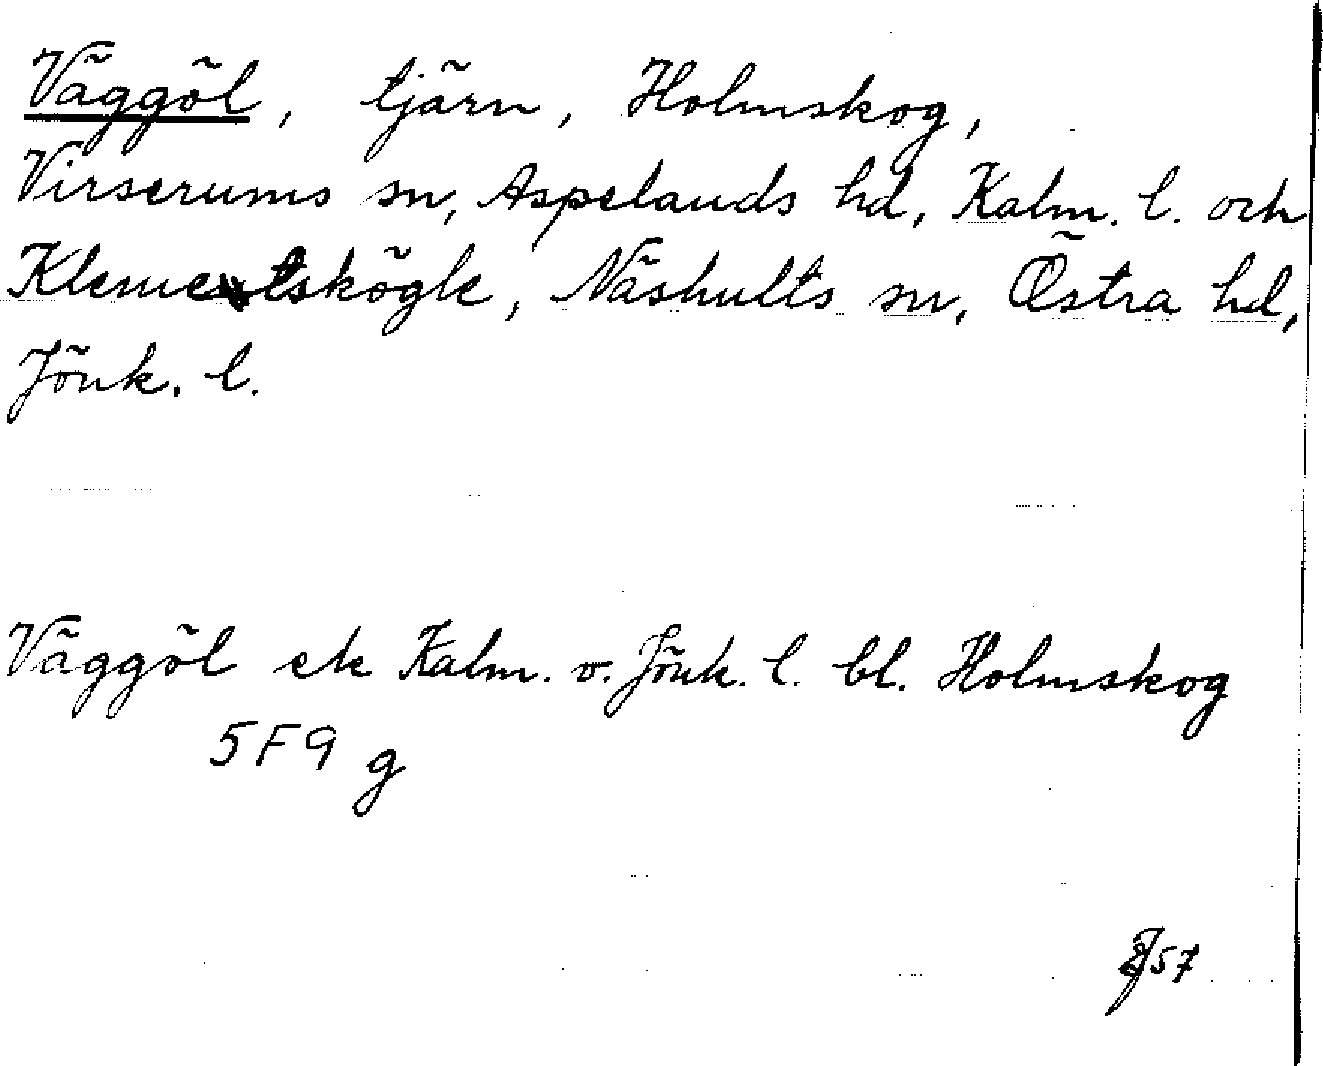 Väggöl, tjärn, Holmskog,
Virserums sn, Aspelands hd, Kalm. l. och
Klemetskögle, Näshults sn, Östra hd,
Jönk. l.
Väggöl ek Kalm. o. Jönk. l. bl. Holmskog
5F9 g
57